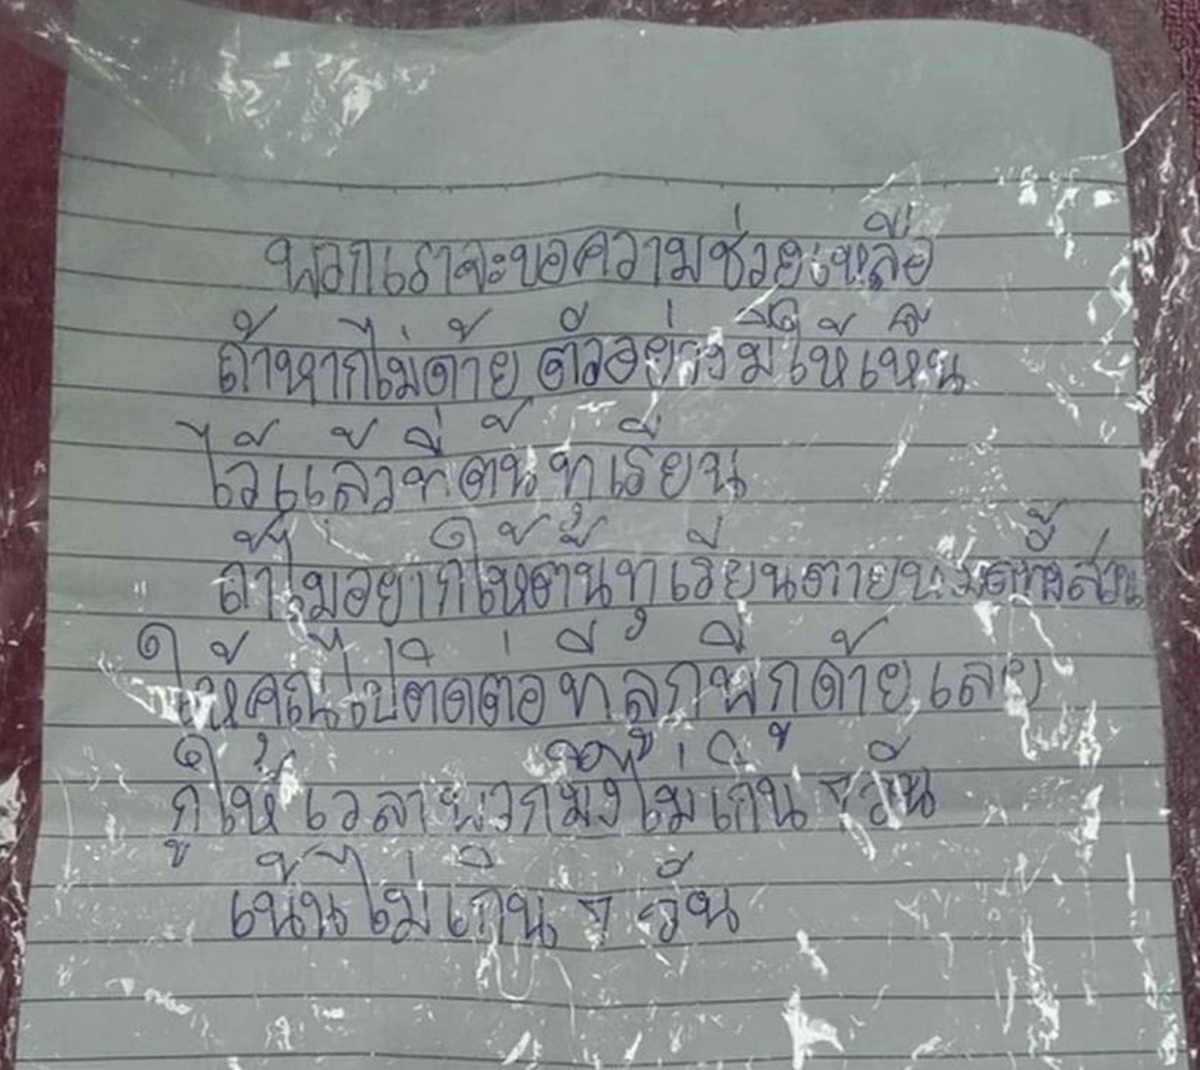 พวกเราจะขอความช่วยเหลือ
ถ้าหากไม่ด้าย ตัวอย่างมีให้เห็น
ไว้แล้วที่ต้นทุเรียน
ถ้าไม่อยากให้ต้นทุเรียนตายหมดทั้งสวน
ให้คุณไปติดต่อ ที่ลูกพี่กูด้ายเลย
กูให้เวลาพวกมึงไม่เกิน ๆ วัน
เน้นไม่เกิน ๆ วัน